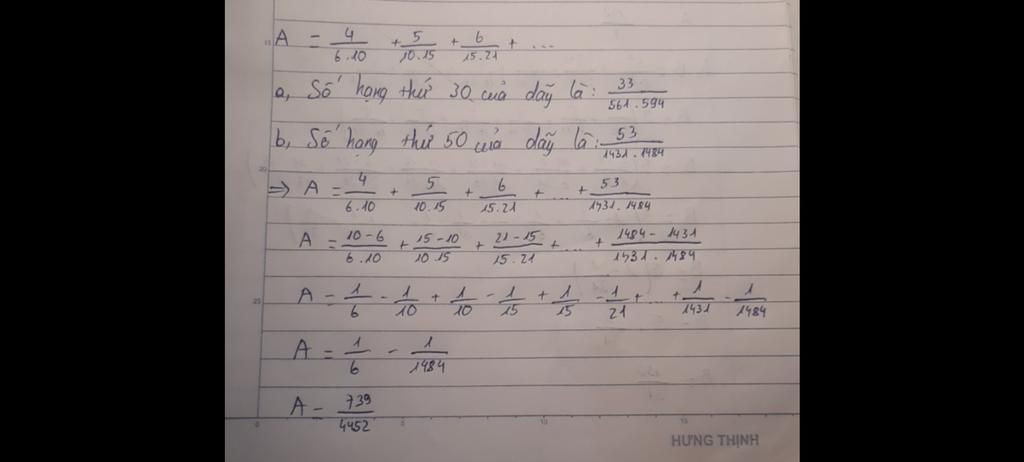 A = 4/6.10 + 5/10.15 + 6/15.21 + ...
a, Số hạng thứ 30 của dãy là: 33/561.594
b, Số hạng thứ 50 của dãy là: 53/1431.1484
=> A = 4/6.10 + 5/10.15 + 6/15.21 + ... + 53/1431.1484
A = 10-6/6.10 + 15-10/10.15 + 21-15/15.21 + ... + 1484-1431/1431.1484
A = 1/6 - 1/10 + 1/10 - 1/15 + 1/15 - 1/21 + ... + 1/1431 - 1/1484
A = 1/6 - 1/1484
A = 739/4452
0 5 10 15
HƯNG THỊNH